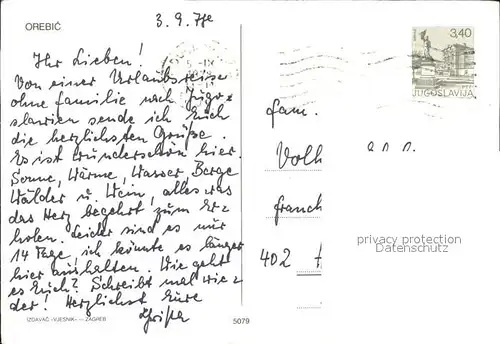 OREBIĆ
3.9.78
Ihr Lieben!
Von einer Urlaubsreise
ohne Familie nach Jugo=
slawien sende ich Euch
die herzlichsten Grüße.
Es ist wunderschön hier.
Sonne, Wärme, Wasser, Berge
Wälder u. Wein, alles was
das Herz begehrt zum Er=
holen. Leider sind es nur
14 Tage, ich könnte es länger
hier aushalten. Wie geht
es Euch? Schreibt mal wie=
der! Herzlichst Eure
IZDAVAČ »VJESNIK« — ZAGREB
5079
3,40
JUGOSLAVIJA
Fam.
Volk
Franck
402
privacy protection
Datenschutz